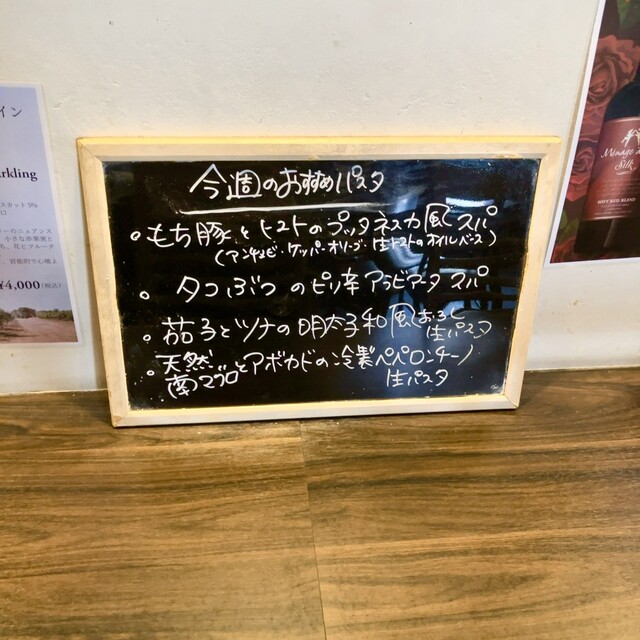 今週のおすすめパスタ
・もち豚とトマトのプッタネスカ風スパ
(アンチョビ・ケッパー・オリーブ・生トマトのオイルベース)
・タコぶつのピリ辛アラビアータスパ
・茄子とツナの明太子和風おろし
生パスタ
・天然
南マグロとアボカドの冷製ペペロンチーノ
生パスタ
イン
rkling
スカット 5%
ロ
¥4,000(税込)
Ménage
Silk
HOT RED BLEND